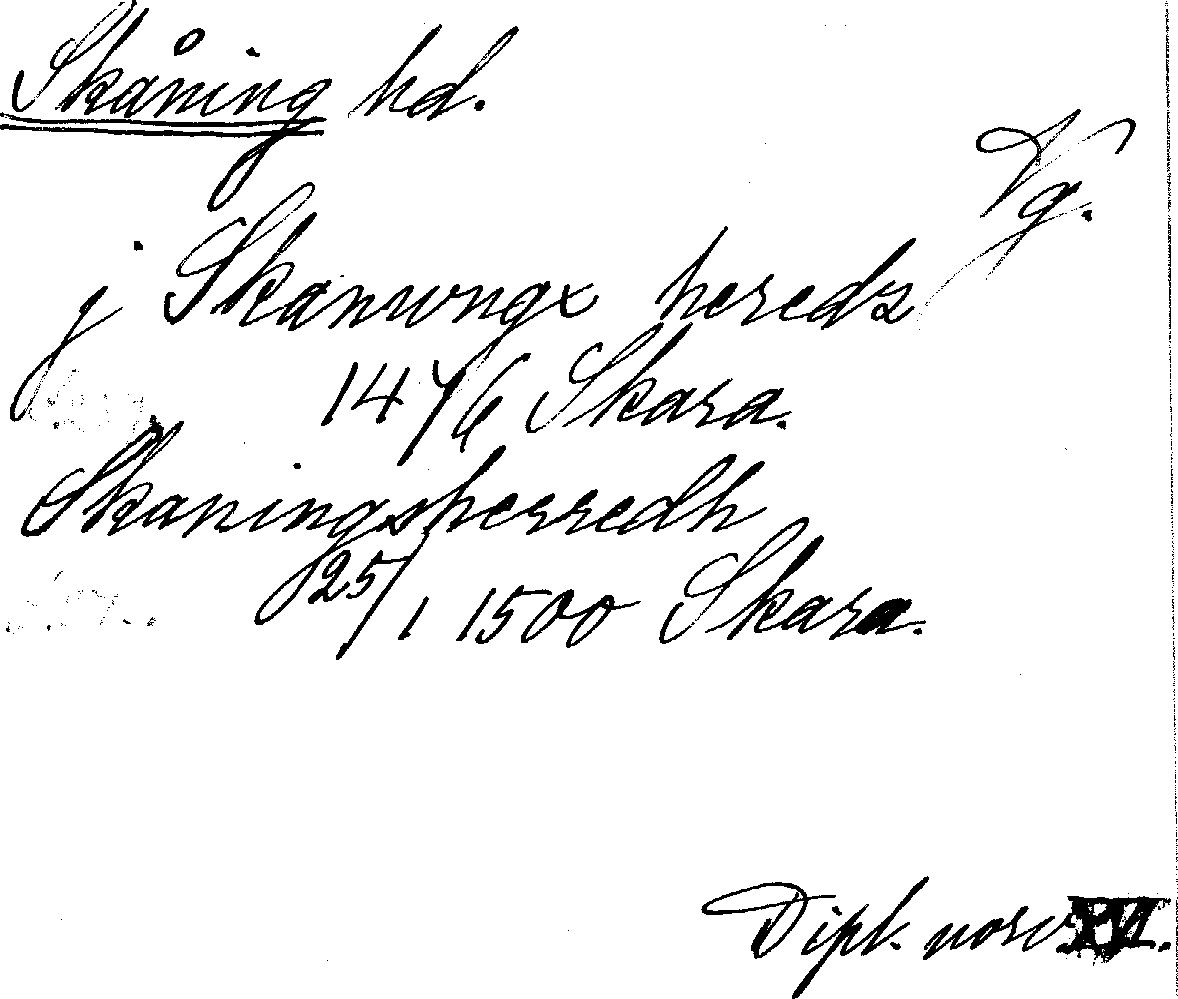 Skåning hd.
Vg.
j Skanungx hereds
1476 Skara.
Skaningsherredh
25/1 1500 Skara.
Dipl. norv. XVI.